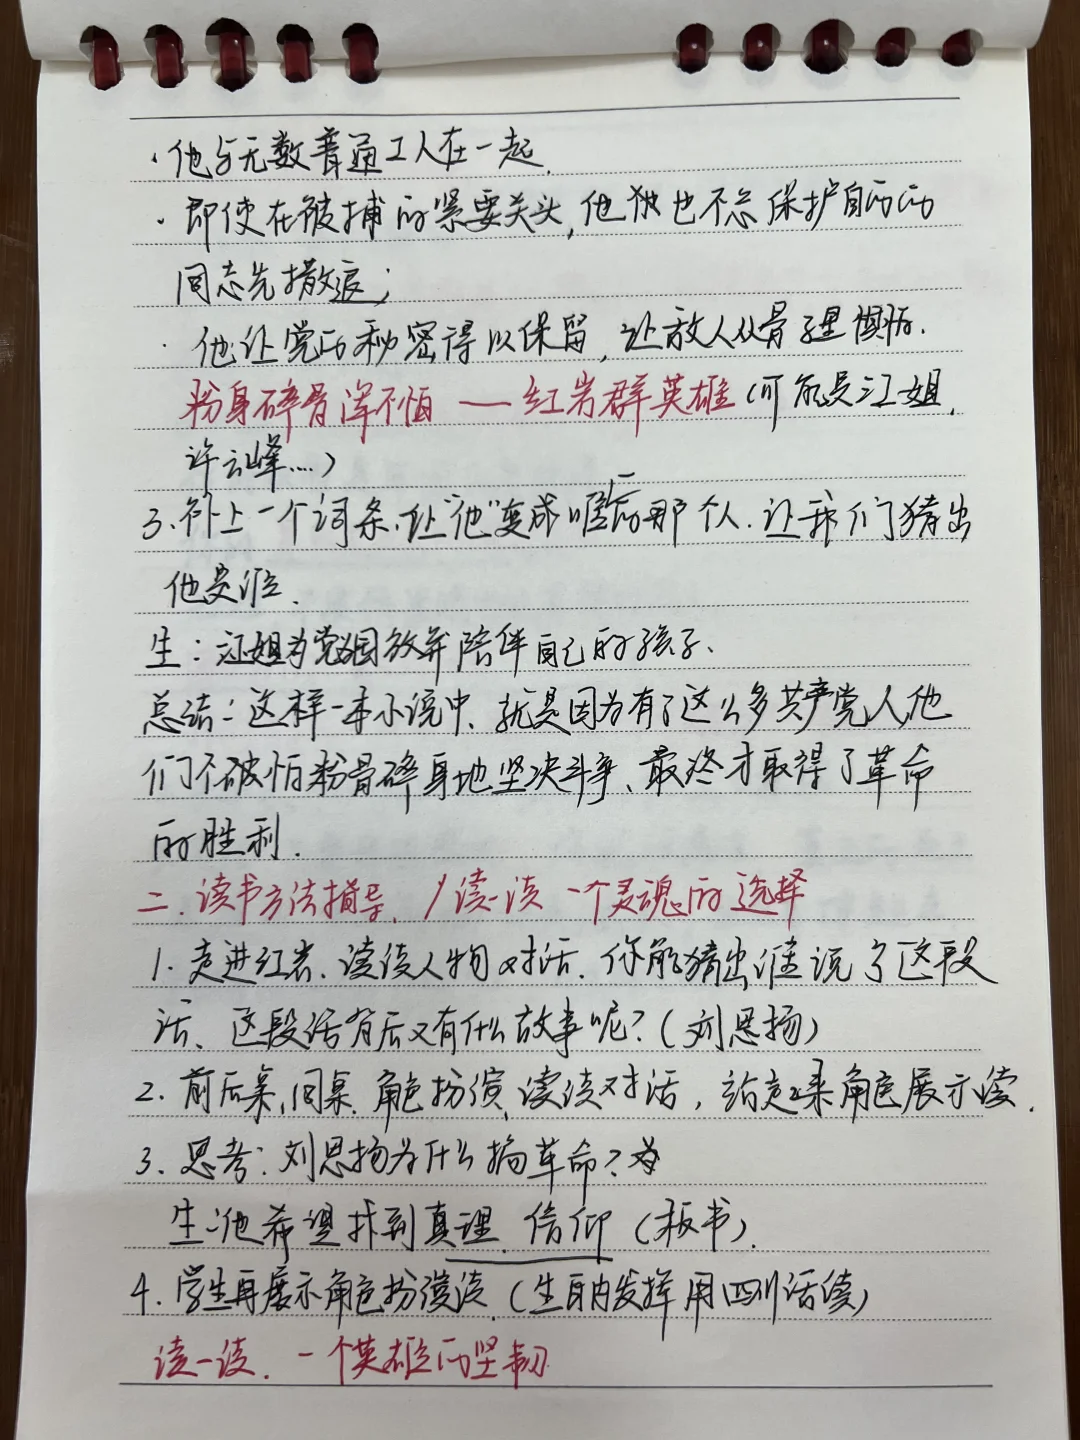 ·他与无数普通工人在一起.
·即使在被捕的紧要关头,他独也不忘保护自己的
同志先撤退;
·他让党的秘密得以保留,让敌人从骨子里惧怕.
粉身碎骨浑不怕 —— 红岩群英雄(可能是江姐,
许云峰....)
3.补上一个词条.让"他"变成唯一的那个人.让我们猜出
他是谁.
生:江姐为党国放弃陪伴自己的孩子.
总结:这样一本小说中、就是因为有了这么多共产党人他
们不惧怕粉骨碎身地坚决斗争、最终才取得了革命
的胜利.
二.读书方法指导. 读一读 一个灵魂的选择
1.走进红岩、读读人物对话.你能猜出谁说了这段
话、这段话背后又有什么故事呢?(刘思扬)
2.前后桌,同桌.角色扮演,读读对话,站起来角色展示读.
3.思考:刘思扬为什么搞革命?
生:他希望找到真理.信仰(板书).
4.学生再展示角色扮演读.(生自由发挥用四川话读)
读一读. 一个英雄的坚韧